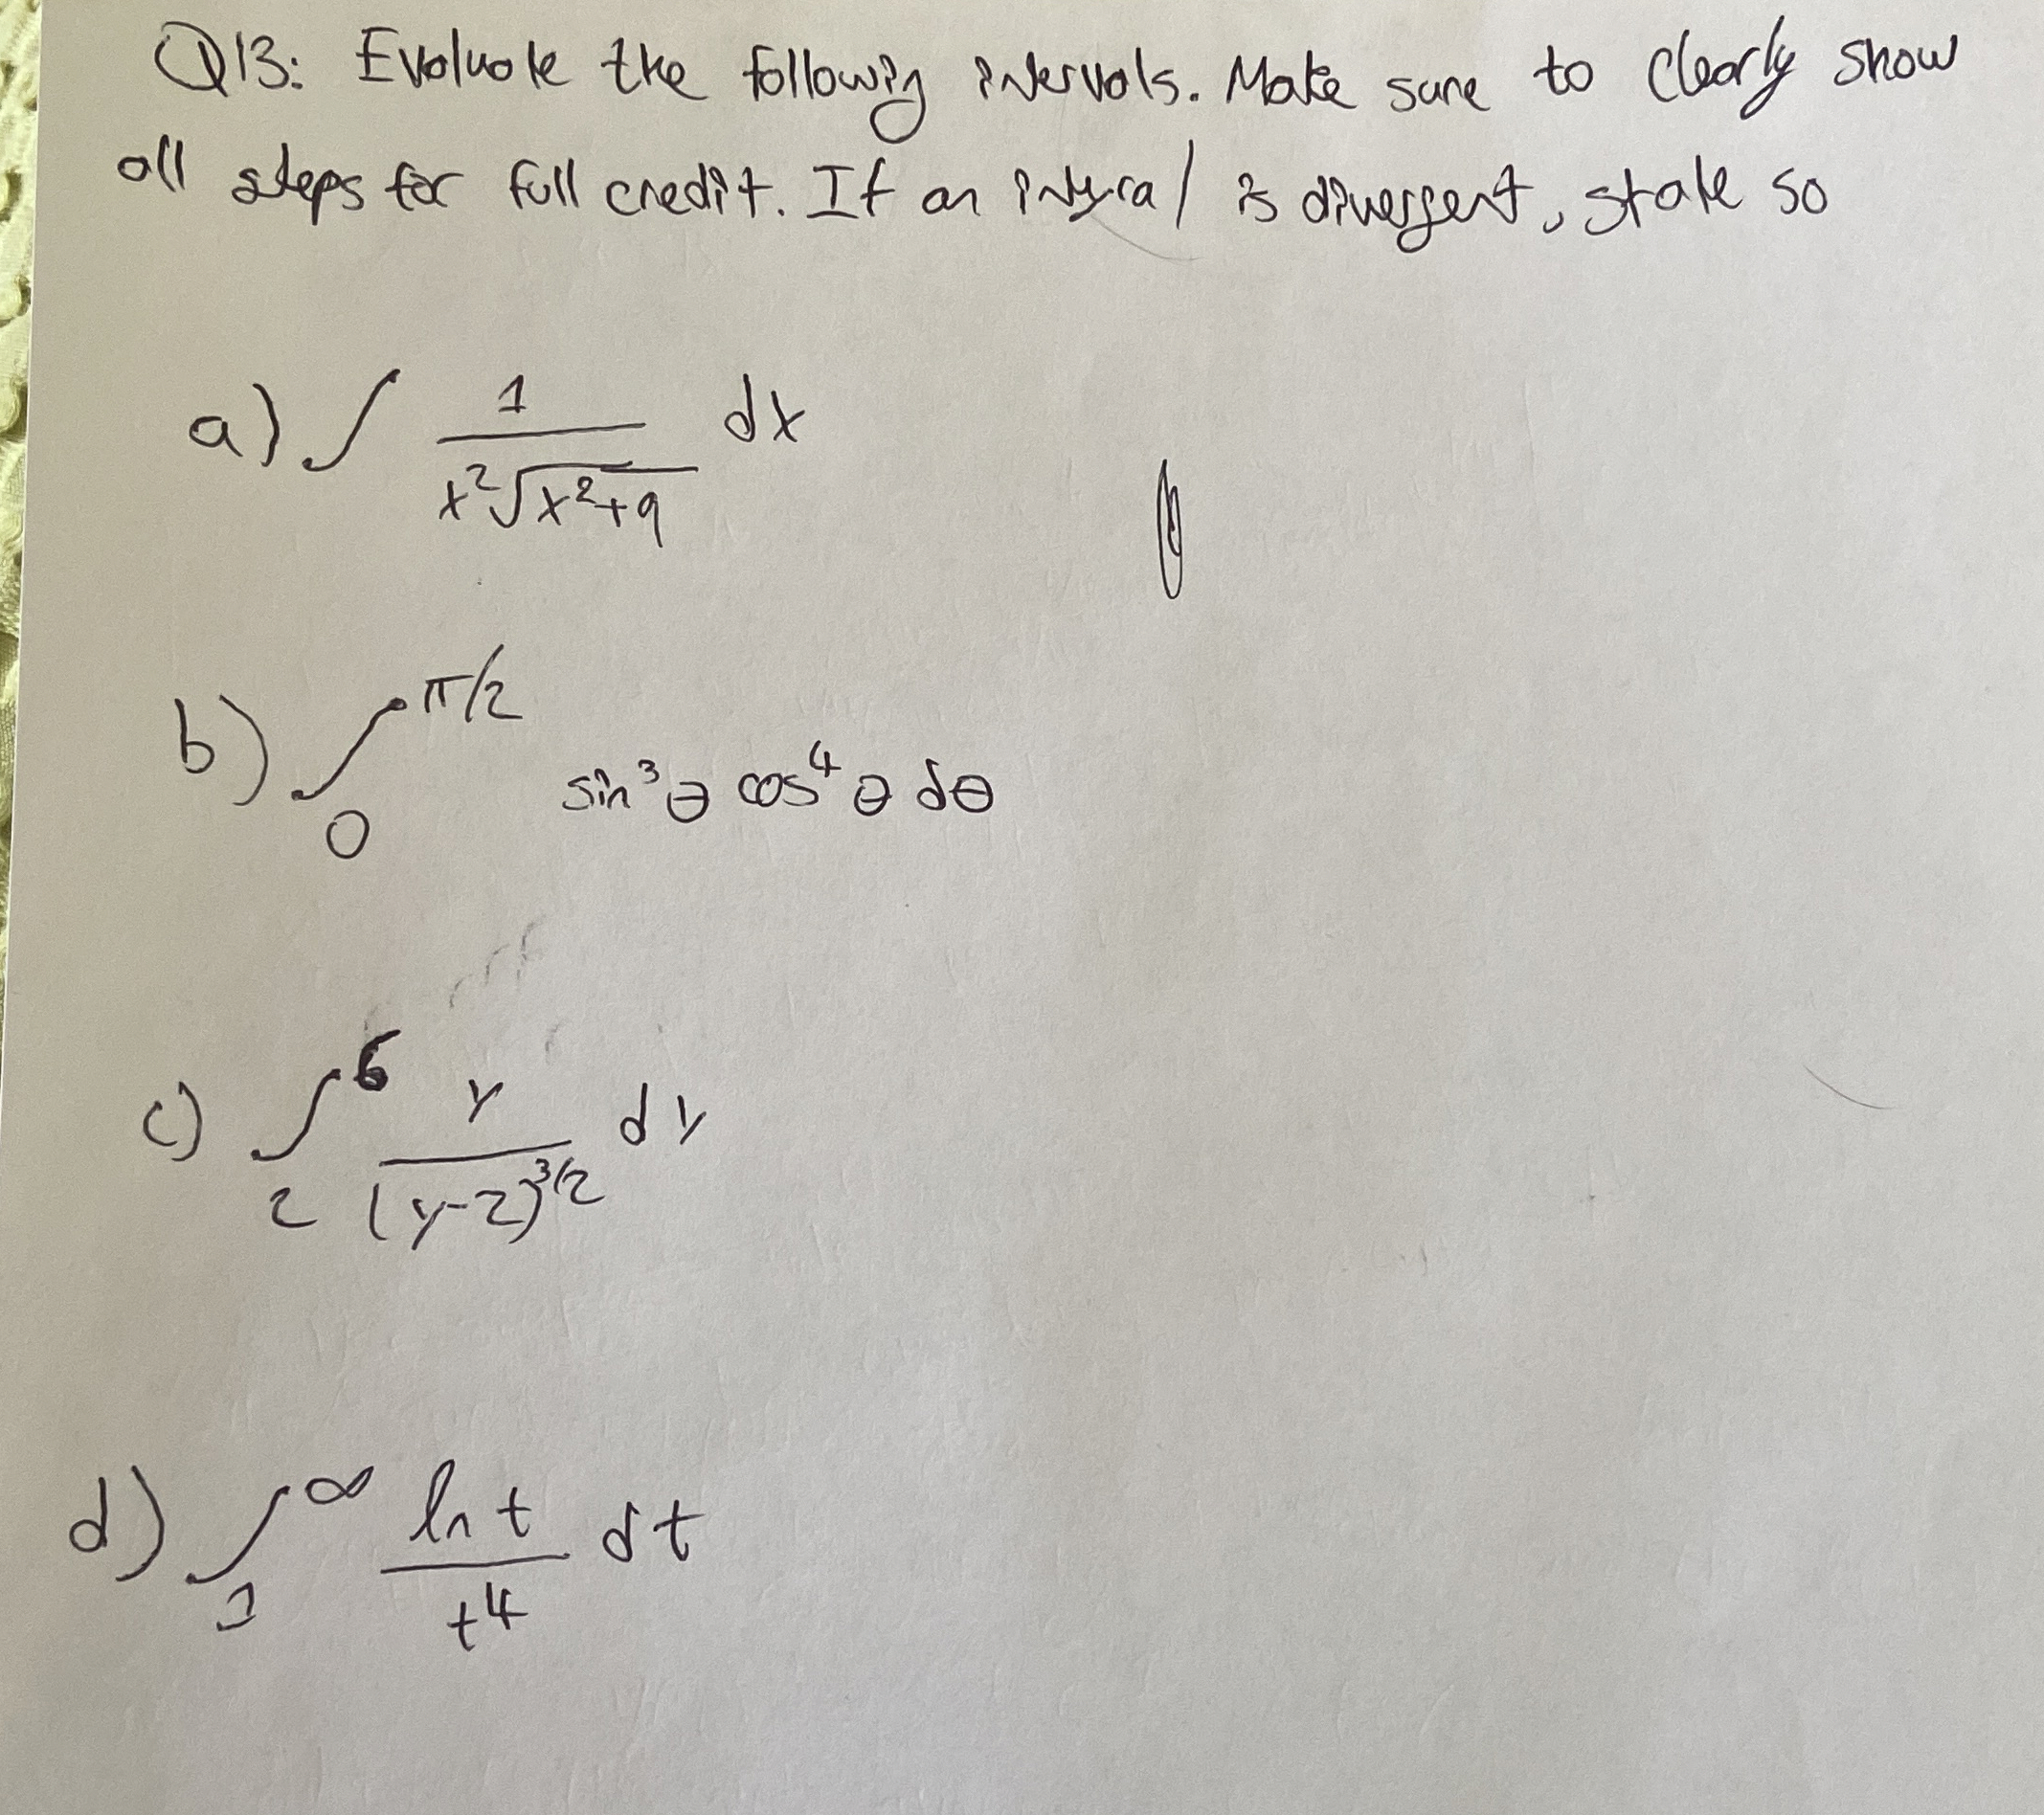 Q13: Evaluate the following intervals. Make sure to clearly show
all steps for full credit. If an integral is divergent, state so
a) ∫ 1/(x²√(x²+9)) dx
b) ∫₀^(π/2) sin³θ cos⁴θ dθ
c) ∫₂⁶ y/(y-2)^(3/2) dy
d) ∫₁^∞ ln t/t⁴ dt